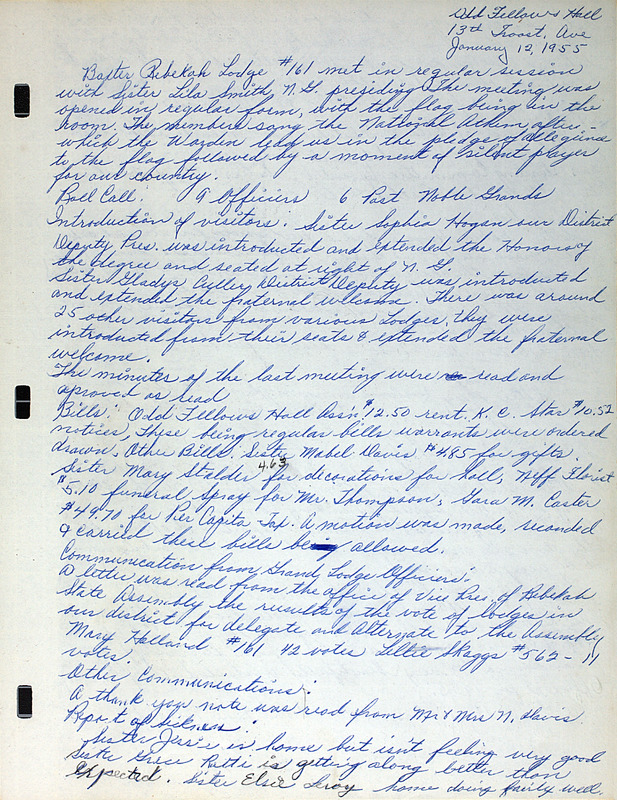 Odd Fellows Hall
13th Troost, Ave
January 12, 1955
Baxter Rebekah Lodge #161 met in regular session
with Sister Lila Smith, N.G. presiding. The meeting was
opened in regular form, with the flag being in the
room. The members song the National Athem, after-
which the Warden lead us in the pledge of allegiance
to the flag followed by a moment of silent prayer
for our country.
Roll Call: 9 Officiers 6 Past Noble Grands
Introduction of visitors: Sister Sophia Hogan our District
Deputy Pres. was introduced and extended the Honors of
the degree and seated at right of N.G.
Sister Gladys District Deputy was introducted
and extended the fraternal welcome. There was around
25 other visitors from various Lodges, they were
introducted from their seats & extended the fraternal
welcome.
The minutes of the last meeting were read and
aproved as read
Bills: Odd Fellows Hall Ass'n $12.50 rent. K.C. Star $10.52
notices, These being regular bills warrants were ordered
drawn, Other Bills. Sister Mabel Davis $4.85 for gifts.
4.63
Sister Mary Stalder for decorations for hall, Neff Florist
$5.10 funeral spray for Mr. Thompson, Gara M. Caster
$49.70 for Per Capita Tax. A motion was made, seconded
& carried these bills being allowed.
Communication from Grand Lodge Officers:
A letter was read from the office of Vice Pres. of Rebekah
State Assembly the ruesults of the vote of lodges in
our district for delegate and Alternate to the Assembly
Mary Holland #161 42 votes Lillie Skaggs #562 - 11
votes.
Other Communications:
A thank you note was read from Mr & Mrs N. Davis.
Report of Sickness:
Sister Jessie is home but isn't feeling very good
Sister Grece Ratti is getting along better than
expected. Sister Elsie Leroy home doing fairly well.